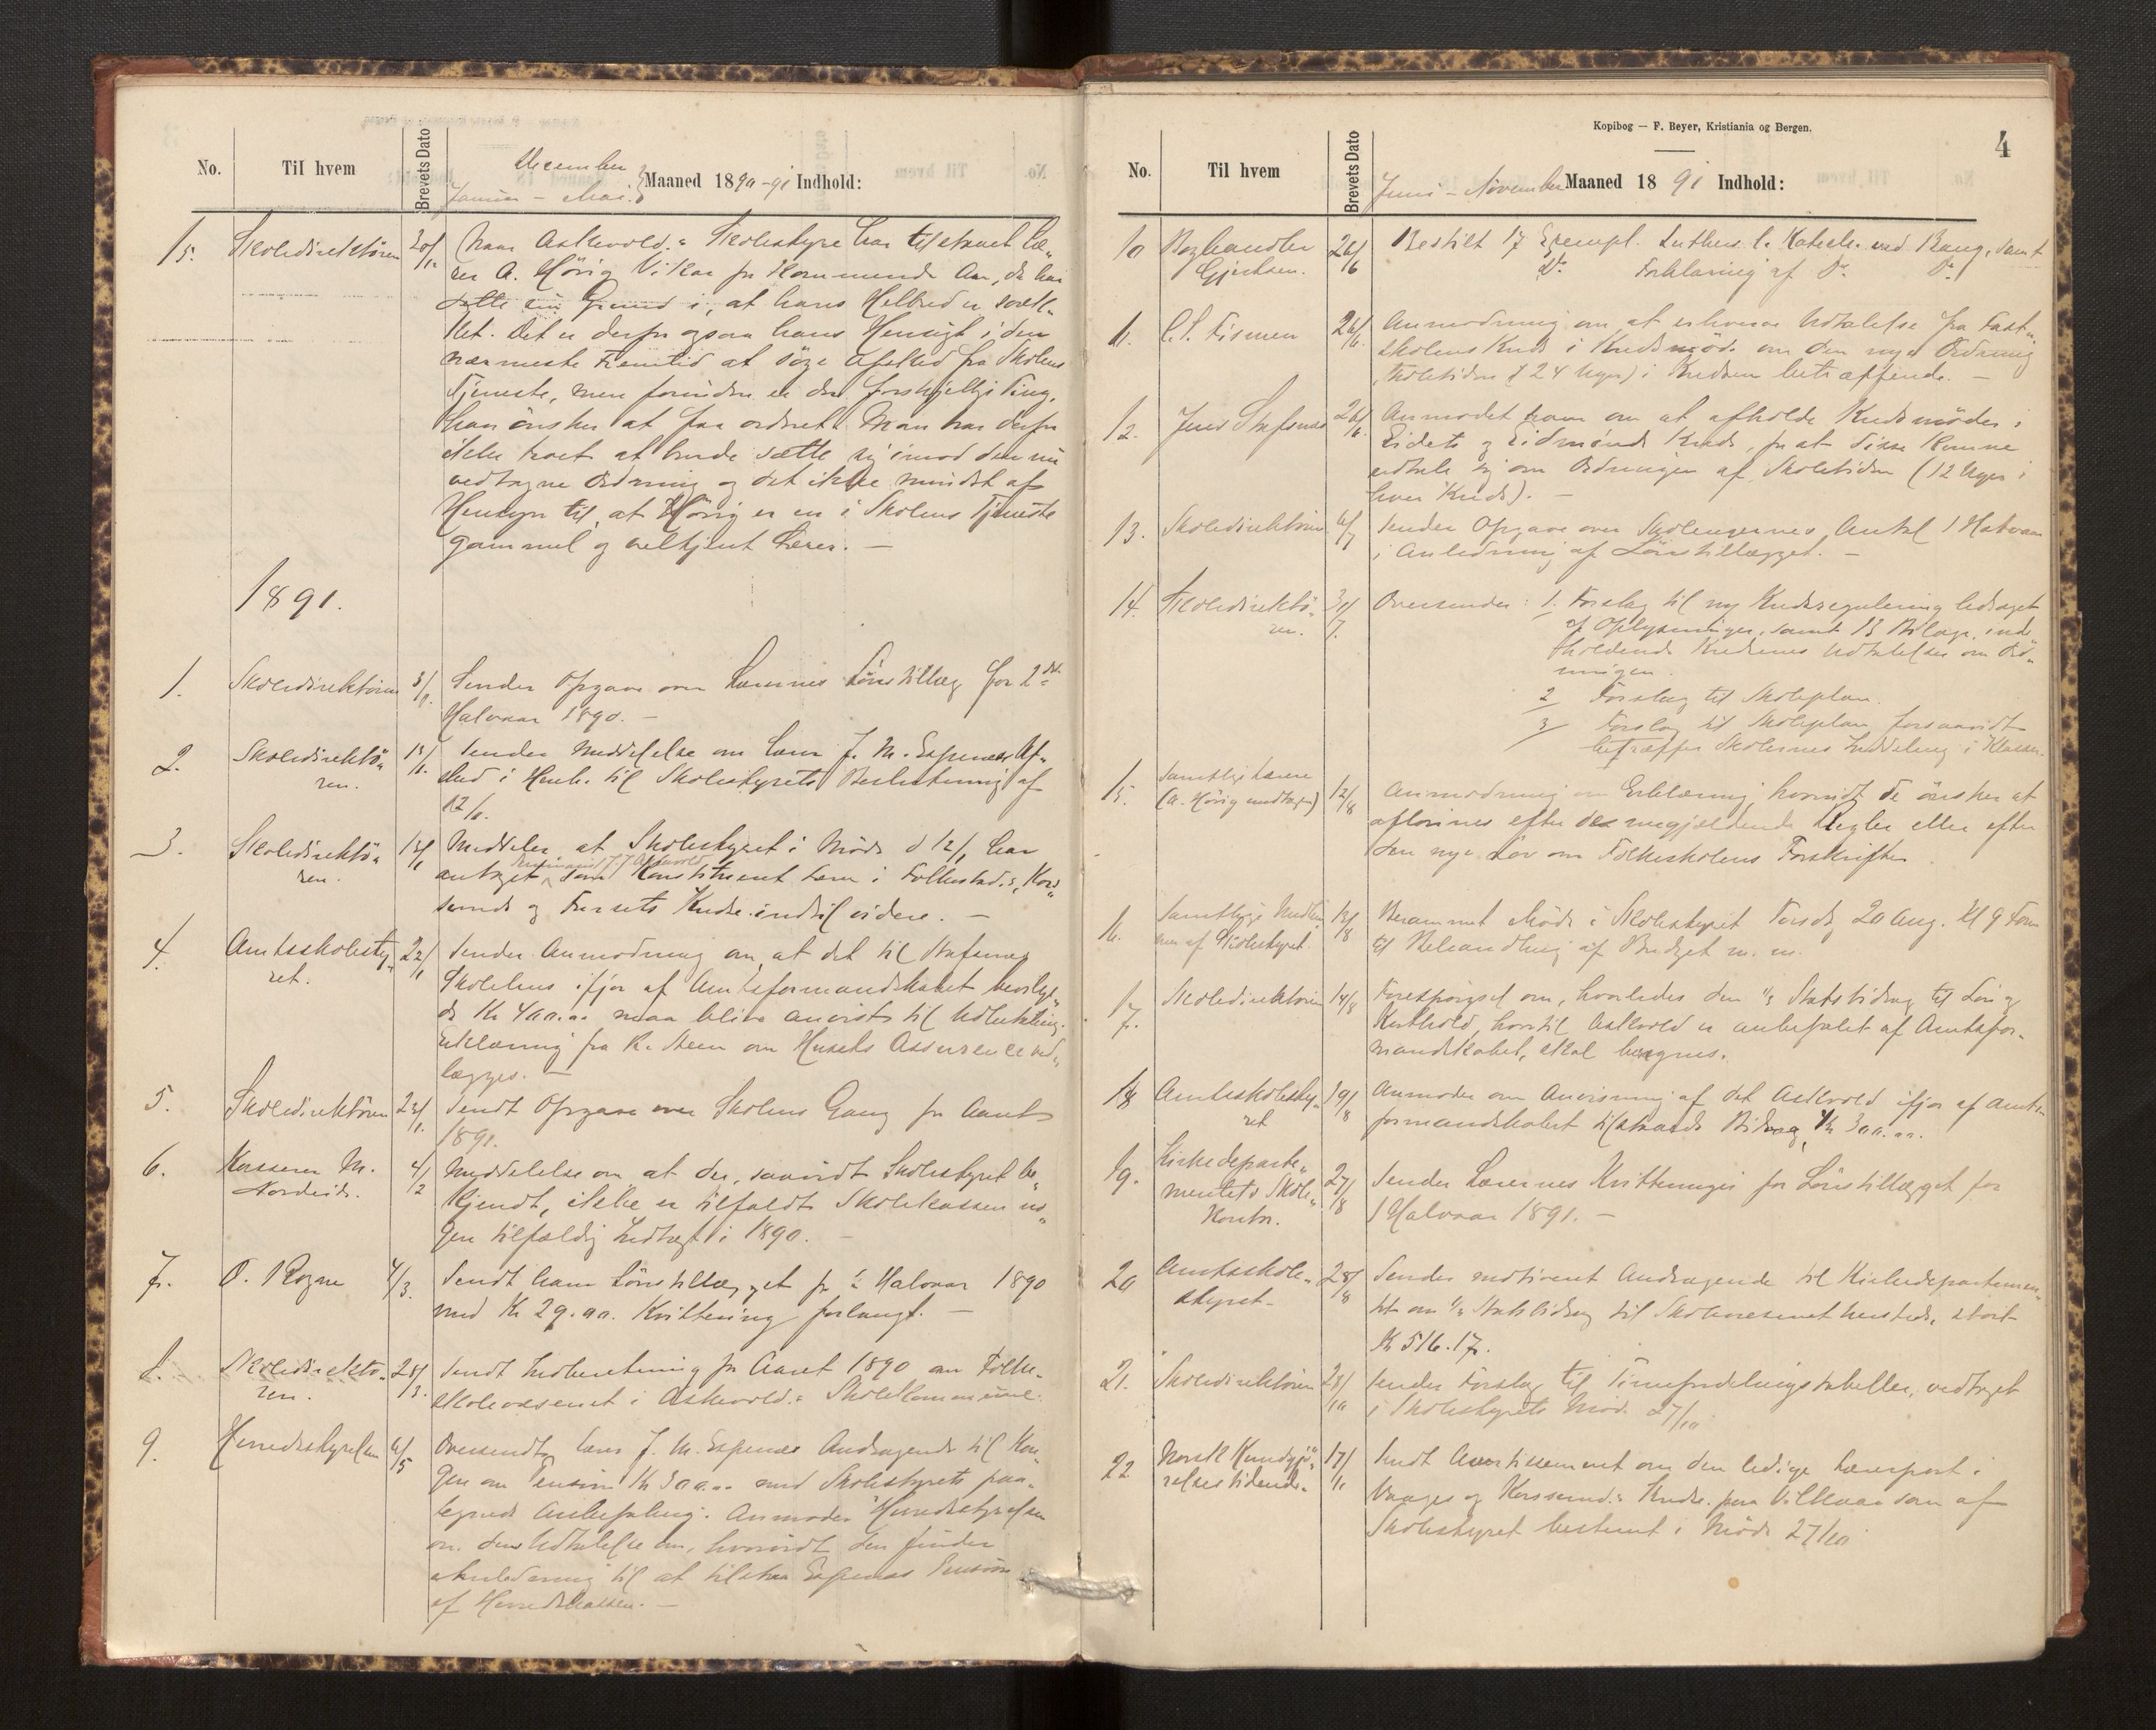 No. Til hvem Brevets Dato December Januar - Mai. Maaned 1890-91 Indhold:
15. Skoledirektören 20/12 Naar Askevold.s Skolestyre har tilstaaet Læ„
rer A. Hörig Vikar for kommende Aar, da har
dette sin Grund i, at hans Helbred er svæk„
ket. Det er derfor ogsaa hans Hensigt i den
nærmeste Fremtid at söge Afsked fra Skolens
Tjeneste, men forinden er der forskjellige Ting,
han önsker at faa ordnet. Man har derfor
ikke troet at burde sætte sig imod den nu
vedtagne Ordning og det ikke mindst af
Hensyn til, at Hörig er en i Skolens Tjeneste
gammel og veltjent Lærer. —
1891.
1. Skoledirektören 3/1. Sender Opgave over Lærernes Lönstillæg for 2det
Halvaar 1890. —
2. Skoledirektö„ren. 13/1. Sender Meddelelse om Lærer J. M. Espenæs Af„
sked i Henh. til Skolestyrets Beslutning af
12/1.
3. Skoledirektö„ren. 13/1 Meddeler, at Skolestyret i Möde d 12/1 har
antaget J. J. Askevold som Konstitueret Lærer i Folkestad.s, Kors„
sunds og Fursets Kredse indtil videre. —
4. Amtsskolesty„ret. 22/1 Sender Anmodning om, at det til Stafsnes
Skolehus ifjor af Amtsformandskabet bevilge„
de Kr 400.00 maa blive anvist til Udbetaling.
Erklæring fra R. Steen om Husets Assurence ved„
lægges. —
5. Skoledirektören 23/1. Sendt Opgave over Skolens Gang for Aaret
1891.
6. Kasserer M. Nordeide. 4/2 Meddelelse om at der, saavidt Skolestyret be„
kjendt, ikke er tilfaldt Skolekassen no„
gen tilfældig Indtægt i 1890. —
7. O. Rogne 4/3. Sendt ham Lönstillægget for 2 Halvaar 1890
med Kr 29.00. Kvittering forlangt. —
8. Skoledirektö„ren. 28/3. Sendt Indberetning for Aaret 1890 om Folke„
skolevæsenet i Askevold.s Skolekommune.
9. Herredsstyrelsen 6/5 Oversendt Lærer J. M. Espenæs Andragende til Kon„
gen om Pension Kr 300.00 med Skolestyrets paa„
tegnede Anbefaling. Anmoder Herredsstyrelsen
om dens Udtalelse om, hvorvidt den finder
Anledning til at tilstaa Espenæs Pension
af Herredskassen. —
Kopibog — F. Beyer, Kristiania og Bergen.
4
No. Til hvem Brevets Dato Juni - November Maaned 1891 Indhold:
10 Boghandler Gjertsen. 26/6 Bestilt 17 Exempl. Luthers l. Katek. ved Bang, samt
Do. Forklaring af Do. Do.
11. C. S. Fismen 26/6. Anmodning om at erhverve Udtalelse fra Fast„
skolens Kreds i Kredsmöde om den nye Ordning
(Skoletiden 24 Uger) i Kredsen betræffende. —
12. Jens Stafsnes 26/6. Anmodet ham om at afholde Kredsmöder i
Eidets og Kreds, for at disse kunne
udtale sig om Ordningen af Skoletiden (12 Uger i
hver Kreds). —
13. Skoledirektören 6/7 Sender Opgave over Skolengernes Antal 1 Halvaar
i Anledning af Lönstillægget. —
14. Skoledirektö„ren. 30/7. Oversender: 1. Forslag til ny Kredsregulering ledsaget
af Oplysninger, samt 13 Bilage, inde„
holdende Kredsenes Udtalelser om Ord„
ningen.
2 Forslag til Skoleplan.
3 Forslag til Skoleplan forsaavidt
betræffer Skolernes Inddeling i Klasser.
15. Samtlige Lærere (A. Hörig undtagen) 12/8 Anmodning om Erklæring, hvorvidt de önsker at
aflönnes efter de nugjældende Regler eller efter
den nye Lov om Folkeskolens Forskrifter
16. Samtlige Medlem„mer af Skolestyret. 13/8 Berammet Möde i Skolestyret Torsdg 20 Aug. Kl 9 Form
til Behandling af Budget m. m.
17. Skoledirektören 14/8 Forespörgsel om, hvorledes den 1/3 Statsbidrag til Lön og
Kosthold, hvortil Askevold er anbefalet af Amtsfor„
mandskabet, skal beregnes.
18 Amtsskolesty„ret 19/8 Anmoder om Anvisning af det Askevold ifjor af Amts„
formandskabet tilstaaede Bidrag, Kr 300.00.
19. Kirkedeparte„mentets Skole„Kontor. 27/8 Sender Lærernes Kvitteringer for Lönstillægget for
1 Halvaar 1891. —
20 Amtsskole„styret - 28/8 Sender motiveret Andragende til Kirkedepartemen„
tet om Statsbidrag til Skolevæsenet herstede, stort
Kr 516.17.
21. Skoledirektören 28/10 Sender Forslag til Timefordelingstabeller, vedtaget
i Skolestyrets Möde 27/10.
22 Norsk Kundgjö„relsestidende. 17/11 Sendt Avertissement om den ledige Lærerpost i
Vaages og Korssund.s Kredse paa Vilkaar som af
Skolestyret bestemt i Möde 27/10.